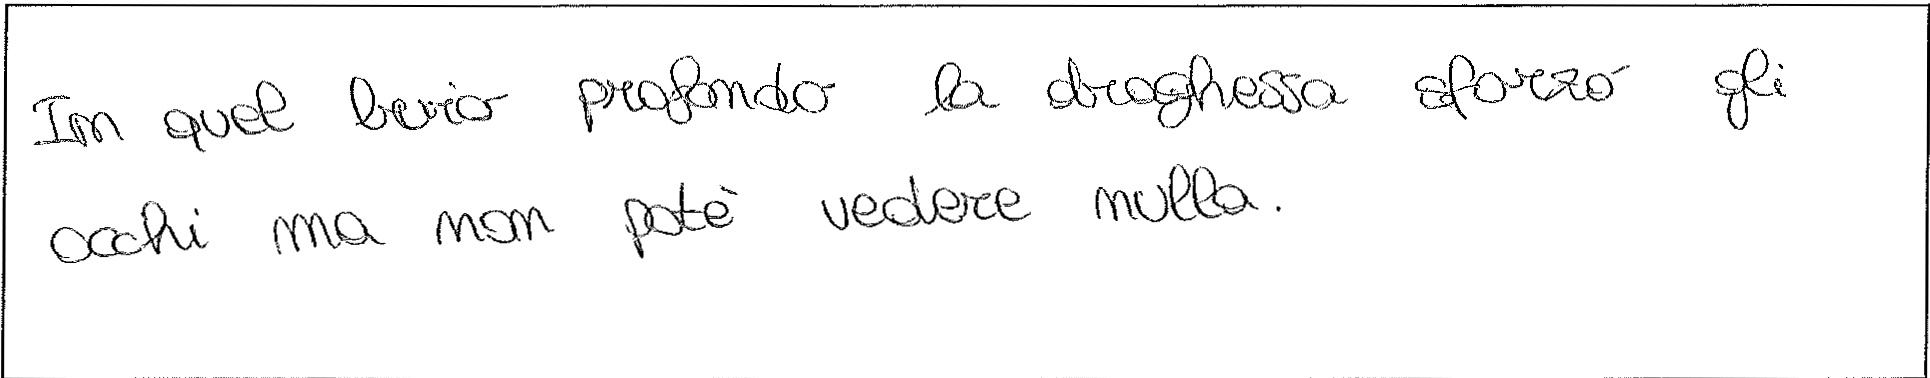 In quel buio profondo la draghessa sforzò gli
occhi ma non potè vedere nulla.